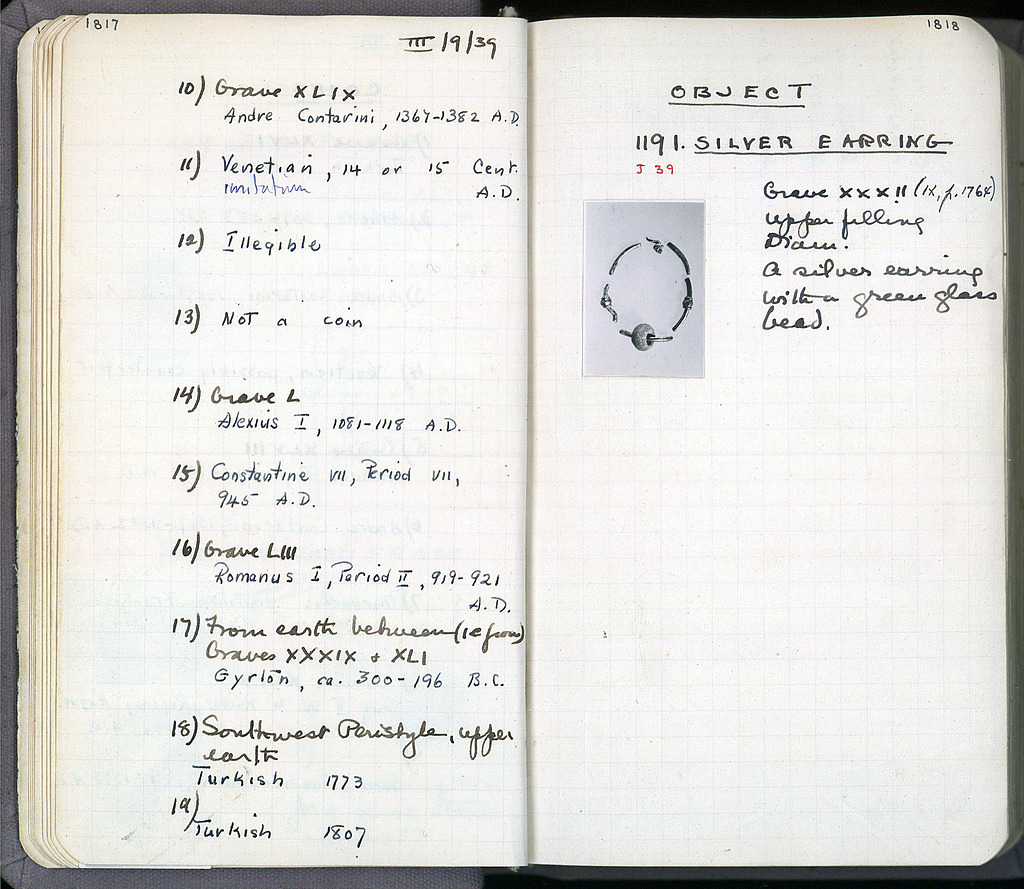 1817
III/9/39
10) Grave XLIX
Andre Contarini, 1367-1382 A.D.
11) Venetian, 14 or 15 Cent.
imitation A.D.
12) Illegible
13) NOT a coin
14) Grave L
Alexius I, 1081-1118 A.D.
15) Constantine VII, Period VII,
945 A.D.
16) Grave LIII
Romanus I, Period II, 919-921
A.D.
17) From earth between (ie from)
Graves XXXIX + XLI
Gyrton, ca. 300-196 B.C.
18) Southwest Peristyle, upper
earth
Turkish 1773
19)
Turkish 1807
1818
OBJECT
1191. SILVER EARRING
J 39
Grave XXXII (IX, p. 1764)
upper filling
Diam.
A silver earring
with a green glass
bead.